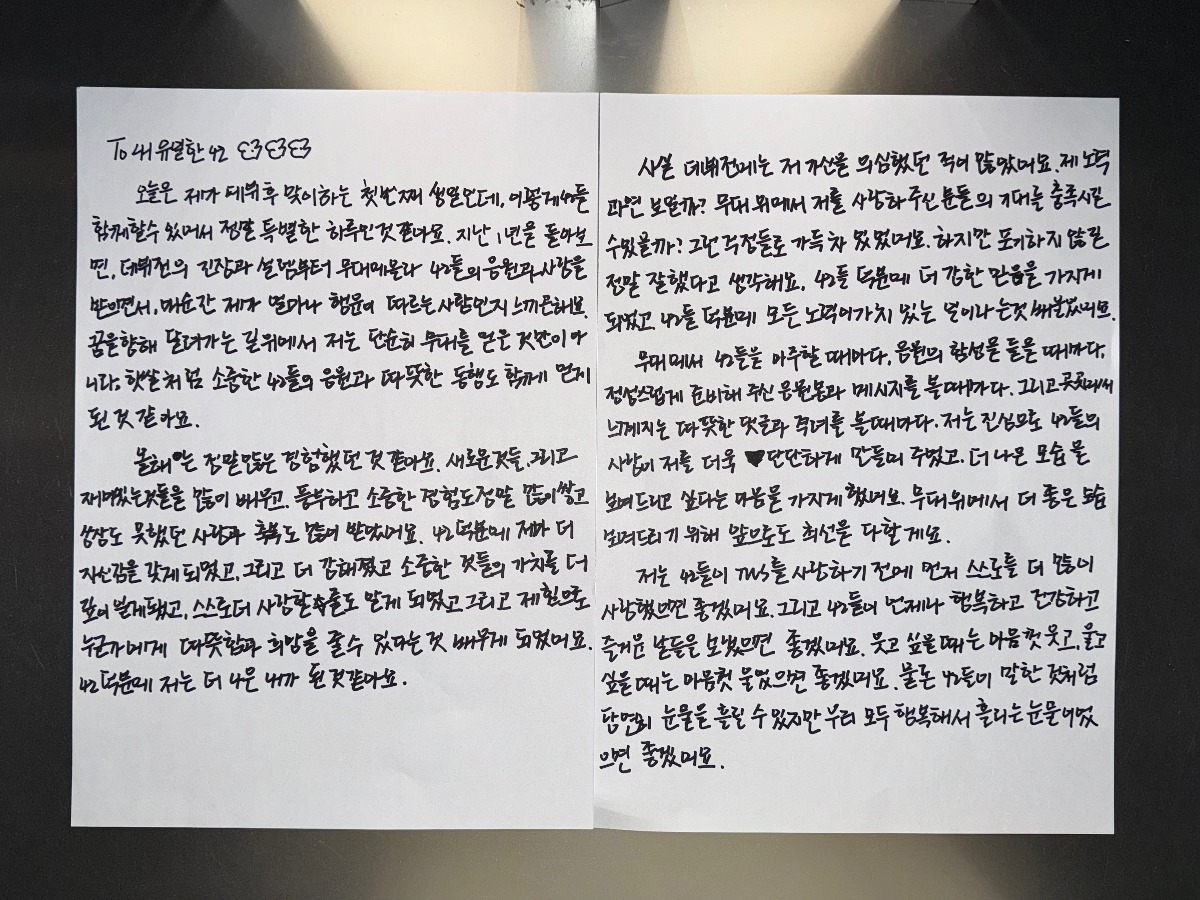 To 내 유일한 42 ෆෆෆ
오늘은 제가 데뷔 후 맞이하는 첫번째 생일인데, 이렇게 42들
함께할수 있어서 정말 특별한 하루인것 같아요. 지난 1년을 돌아보
면, 데뷔전의 긴장과 설렘부터 무대에올라 42들의 응원과 사랑을
받으면서, 매순간 제가 얼마나 행운이 따르는 사람인지 느끼곤해요
꿈을향해 달려가는 길위에서 저는 단순히 무대를 얻은 것만이 아
니라, 햇살처럼 소중한 42들의 응원과 따뜻한 동행도 함께 얻게
된 것 같아요.
올해는 정말 많은 경험했던 것 같아요. 새로운것들, 그리고
재미있는것들을 많이 배우고, 풍부하고 소중한 경험도 정말 많이 쌓고
상상도 못했던 사랑과 축복도 많이 받았어요. 42 덕분에 제가 더
자신감을 갖게 되었고, 그리고 더 강해졌고 소중한 것들의 가치를 더
깊이 알게됐고, 스스로 더 사랑할 줄도 알게 되었고 그리고 제 힘으로
누군가에게 따뜻함과 희망을 줄수 있다는 것 배우게 되었어요.
42 덕분에 저는 더 나은 내가 된것같아요.
사실 데뷔전에는 저 자신을 의심했던 적이 많았어요. 제 노력
과연 보일까? 무대 위에서 저를 사랑하 주신 분들의 기대를 충족시킬
수있을까? 그런 걱정들로 가득 차 있었어요. 하지만 포기하지 않길
정말 잘했다고 생각해요. 42들 덕분에 더 강한 믿음을 가지게
되었고 42들 덕분에 모든 노력이가치 있는 일이라는것 배웠었어요.
무대에서 42들을 마주할 때마다, 응원의 함성을 들을 때마다,
정성스럽게 준비해 주신 응원봉과 메시지를 볼때마다. 그리고 곳곳에서
느껴지는 따뜻한 댓글과 격려를 볼때마다. 저는 진심으로 42들의
사랑이 저를 더욱 ♥단단하게 만들어 주었고, 더 나은 모습을
보여드리고 싶다는 마음을 가지게 했어요. 무대위에서 더 좋은 모습
보여드리기 위해 앞으로도 최선을 다할게요.
저는 42들이 TWS를 사랑하기 전에 먼저 스스로를 더 많이
사랑했으면 좋겠어요. 그리고 42들이 언제나 행복하고 건강하고
즐거운 날들을 보냈으면 좋겠어요. 웃고 싶을 때는 마음껏 웃고, 울고
싶을 때는 마음껏 울었으면 좋겠어요. 물론 42들이 말한 것처럼
당연히 눈물을 흘릴 수 있지만 우리 모두 행복해서 흘리는 눈물이었
으면 좋겠어요.